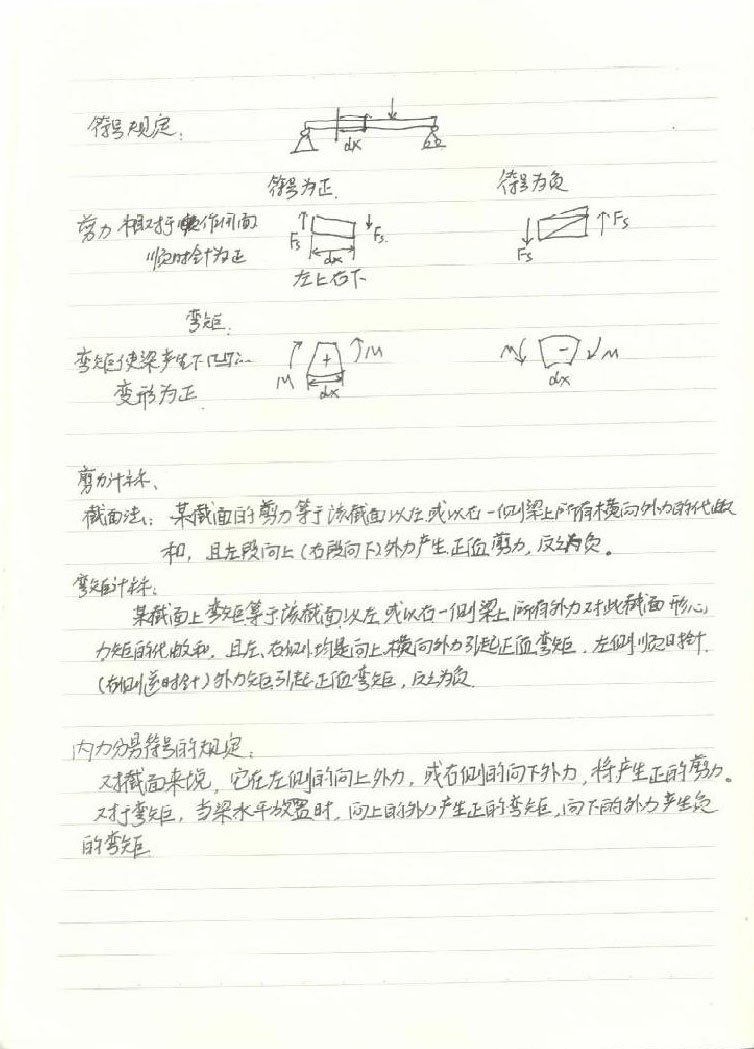 符号规定:
dx
符号为正.
符号为负
剪力 相对于作用面
顺时针为正
Fs
Fs.
dx
左上右下
Fs
Fs
弯矩.
弯矩使梁产生下凸
变形为正
M
+
M
dx
M
-
M
dx
剪力计算、
截面法: 某截面的剪力等于该截面以左或以右一侧梁上所有横向外力的代数
和, 且左段向上(右段向下)外力产生正值剪力, 反之为负。
弯矩计算:
某截面上弯矩等于该截面以左或以右一侧梁上所有外力对此截面形心
力矩的代数和, 且左、右侧均是向上横向外力引起正值弯矩, 左侧顺时针.
(右侧逆时针)外力矩引起正值弯矩, 反之为负.
内力分量符号的规定:
对截面来说, 它在左侧的向上外力, 或右侧的向下外力, 将产生正的剪力。
对于弯矩, 当梁水平放置时, 向上的外力产生正的弯矩, 向下的外力产生负
的弯矩